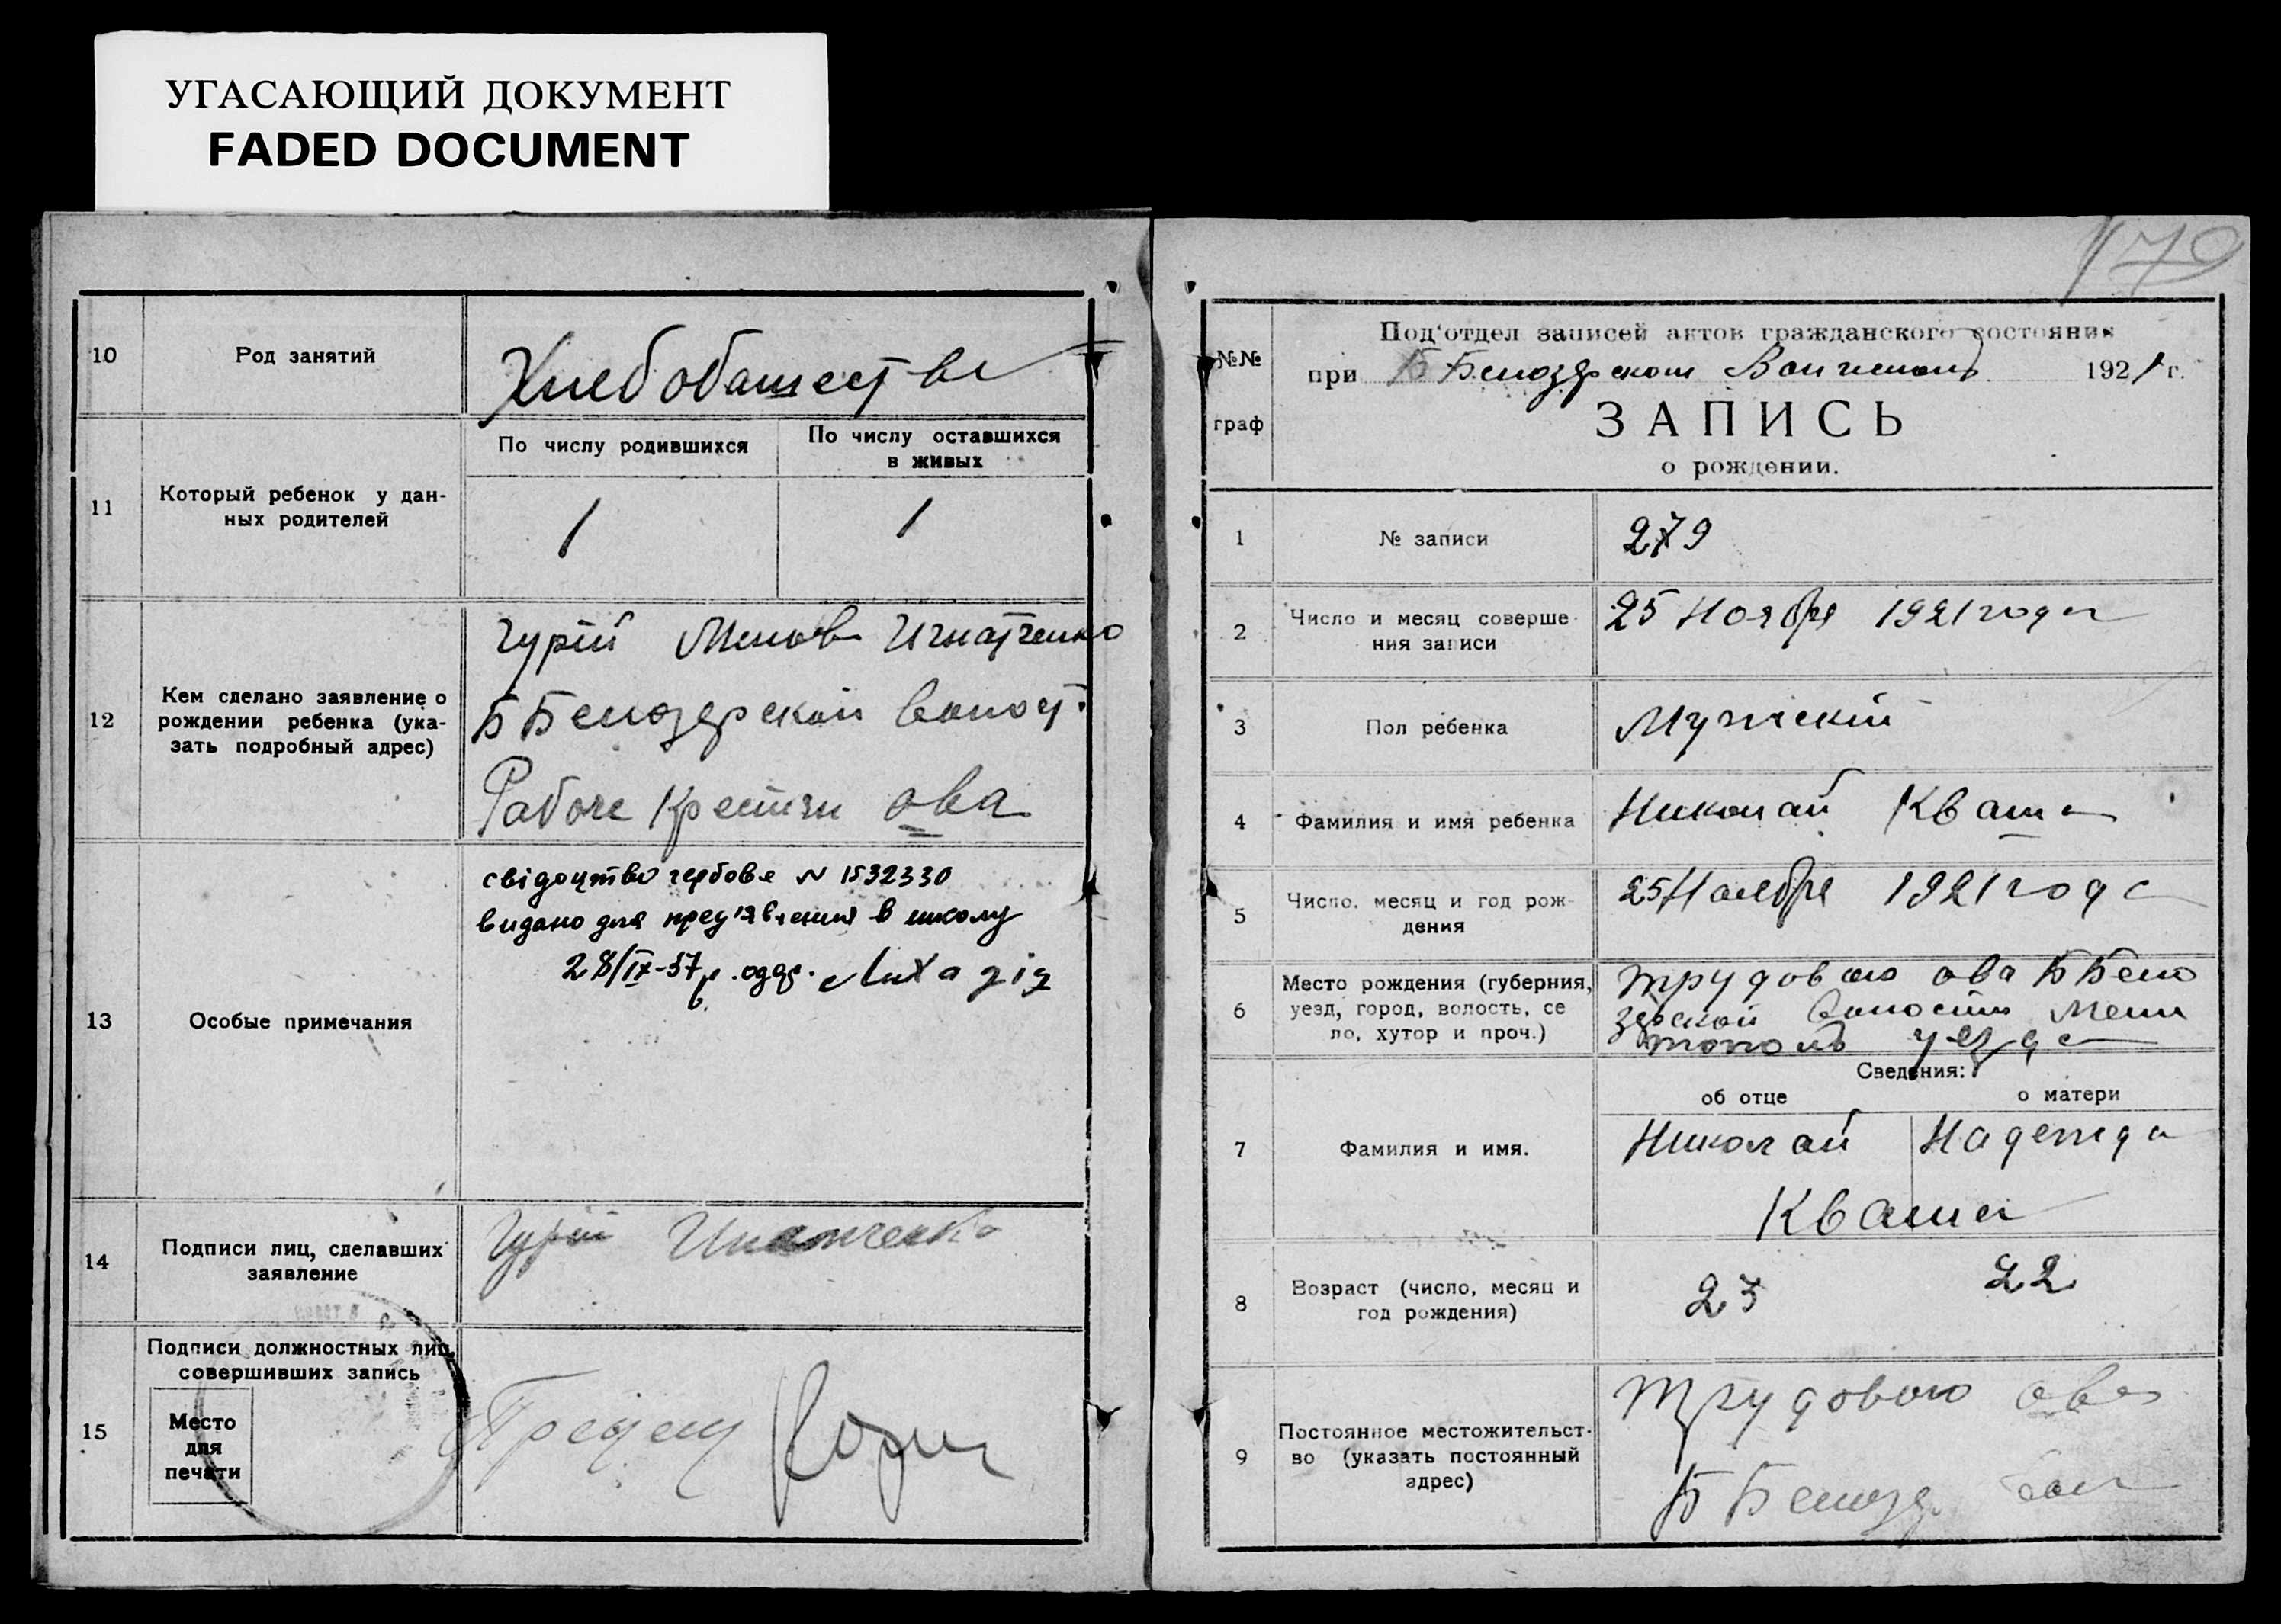 УГАСАЮЩИЙ ДОКУМЕНТ
FADED DOCUMENT
10
Род занятий
11
Который ребенок у дан-
ных родителей
По числу родившихся
1
По числу оставшихся
в живых
1
12
Кем сделано заявление о
рождении ребенка (ука-
зать подробный адрес)
Гурій Игнатченко
Б Белозерской волост.
Рабоче Крестян ова
13
Особые примечания
свідоцтво гербове N 1532330
видано для пред'явлення в школу
28/IX-37р.
14
Подписи лиц, сделавших
заявление
Гурій Игнатченко
15
Подписи должностных лиц,
совершивших запись
Место
для
печати
Предсщ
179
№№
граф
Под'отдел записей актов гражданского состояния
при Б Белозерском 1921 г.
ЗАПИСЬ
о рождении.
1
№ записи
279
2
Число и месяц соверше-
ния записи
25 Ноября 1921 года
3
Пол ребенка
Мужскій
4
Фамилия и имя ребенка
Николай Кваша
5
Число, месяц и год рож-
дения
25 Ноября 1921 года
6
Место рождения (губерния,
уезд, город, волость, се
ло, хутор и проч.)
Трудового ова Б Бело
зерской волости Мели
тополь уезда
7
Фамилия и имя.
Сведения:
об отце
о матери
Николай
Надежда
Кваша
8
Возраст (число, месяц и
год рождения)
23
22
9
Постоянное местожительст-
во (указать постоянный
адрес)
Трудового ова
Б Белозер вол